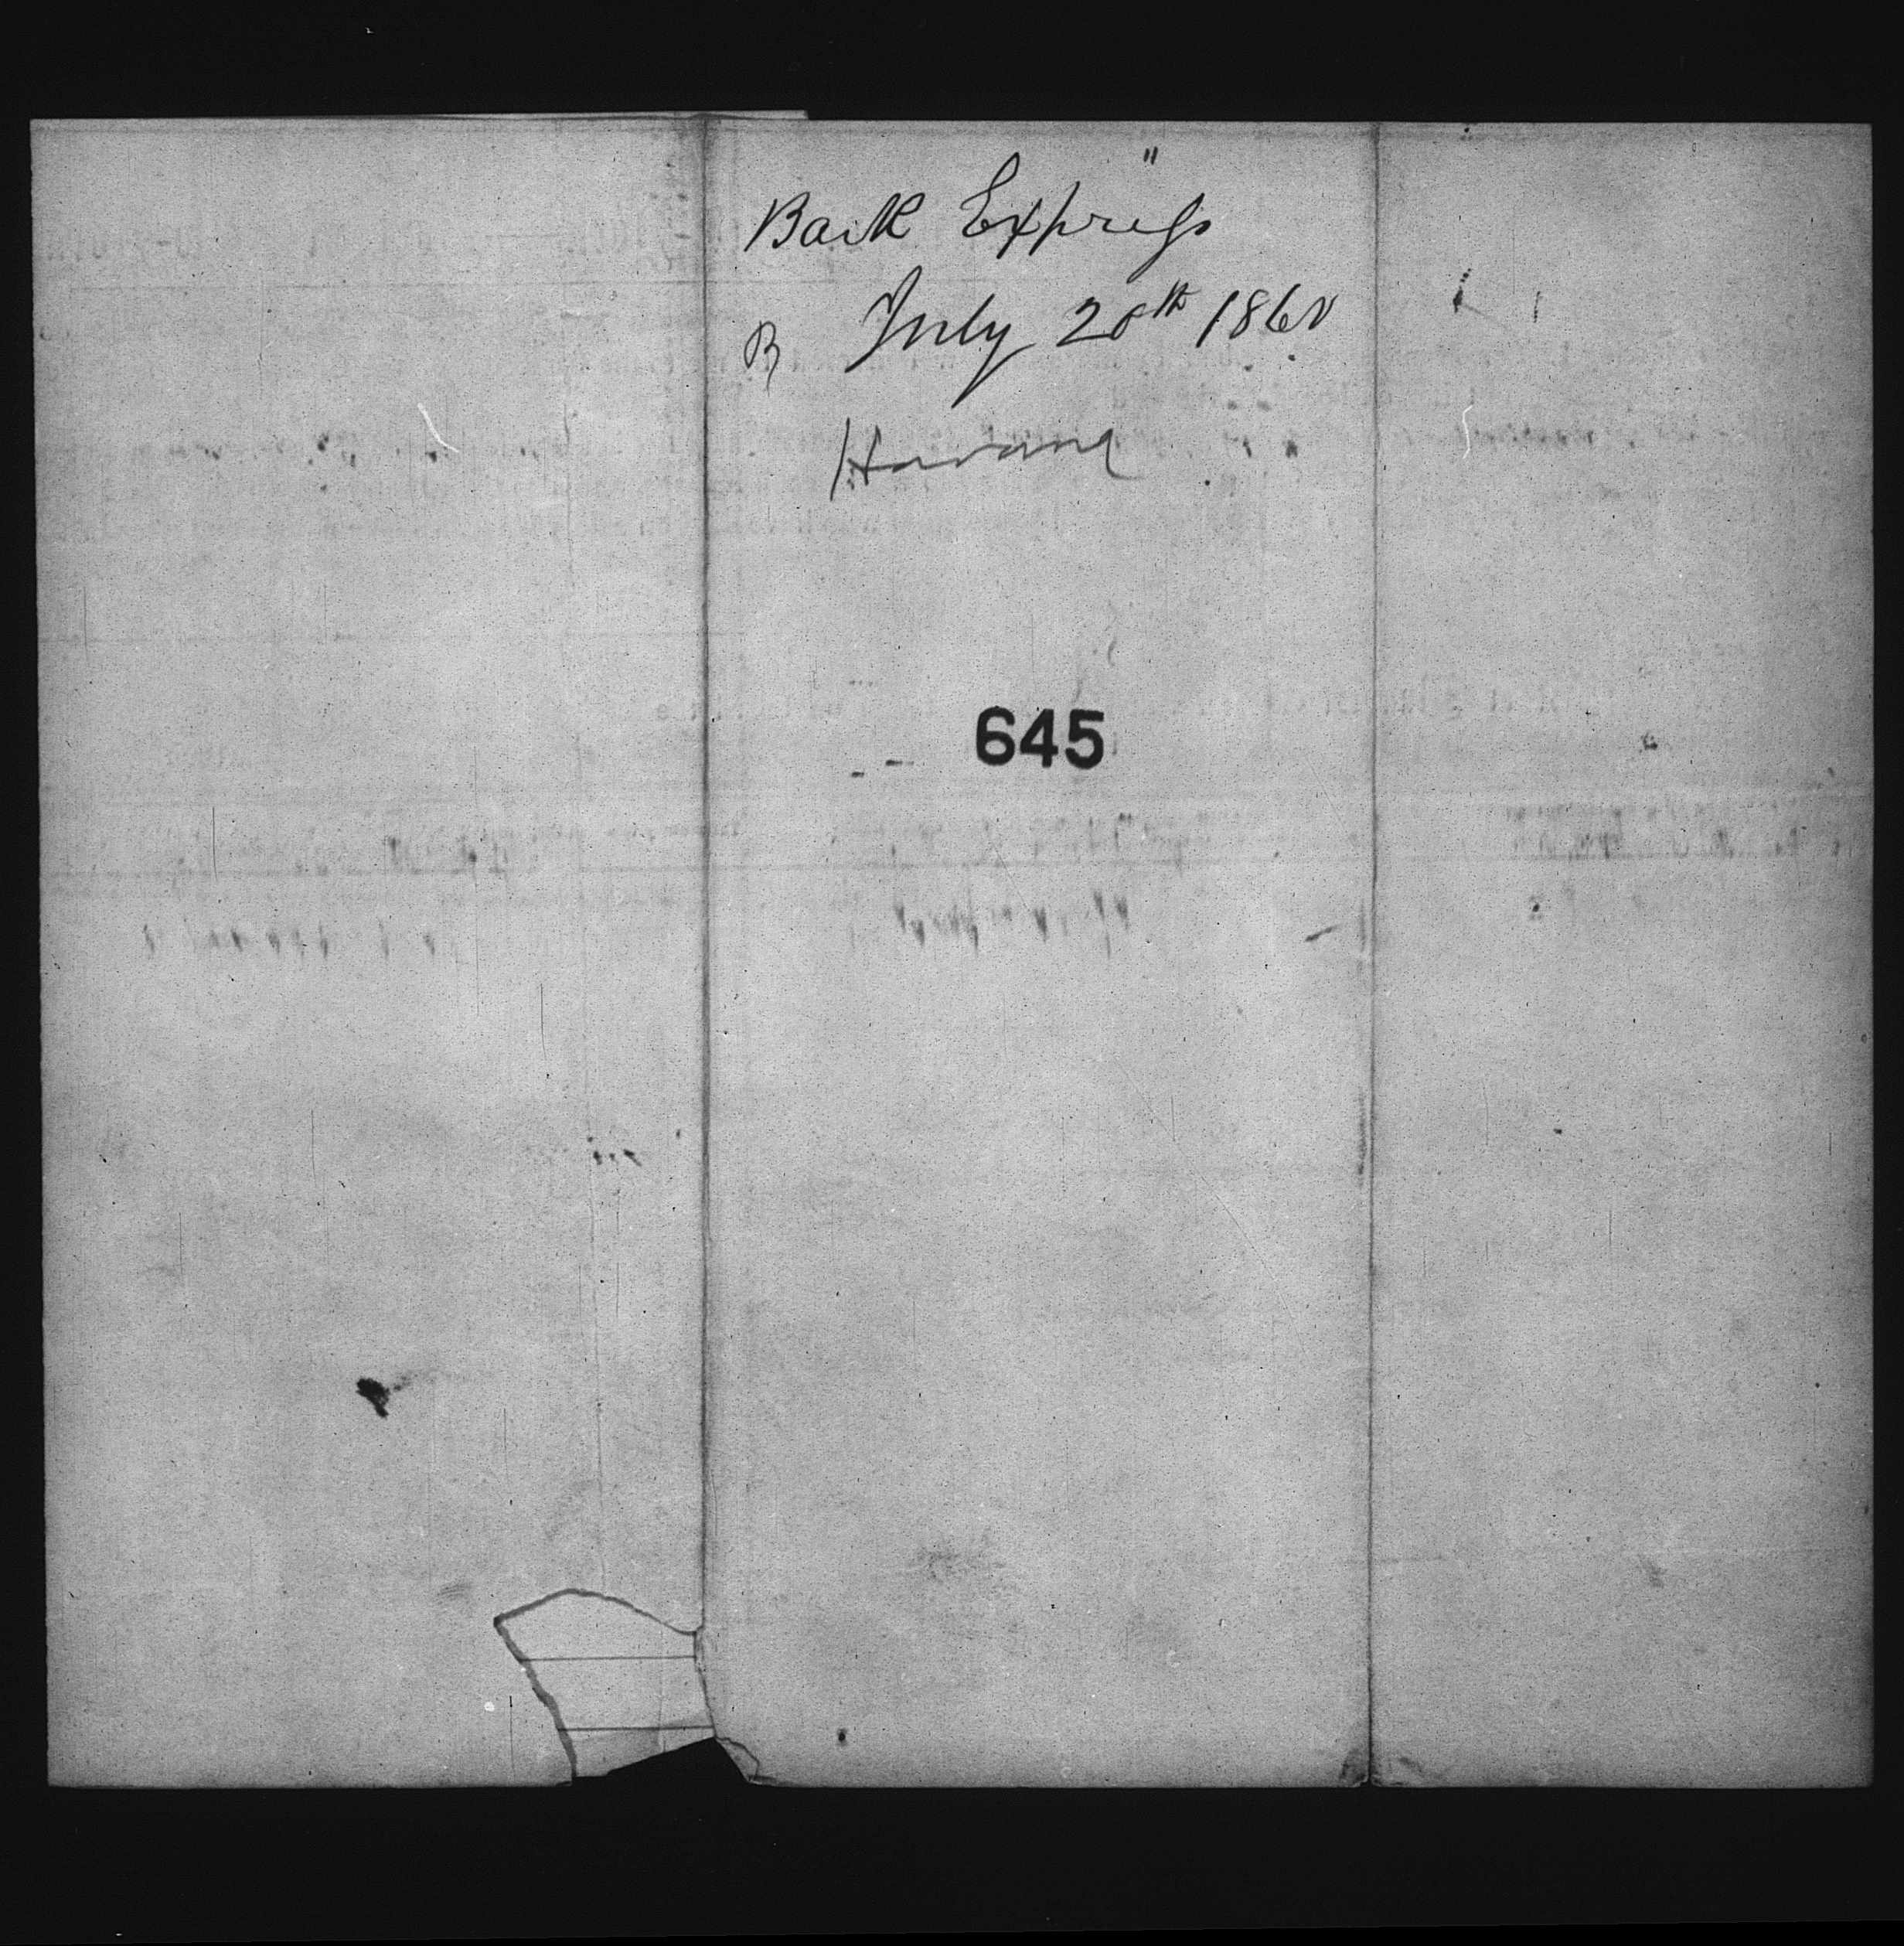 Bark Express "
B July 20th 1860
Havana
645